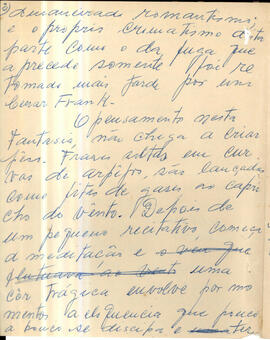 2)
e o proprio cromatismo desta
parte como o da fuga que
a precede somente foi re
tomado mais tarde por um
Cesar Frank.
O pensamento nesta
fantasia, não chega a criar
Frases altas em cur
vas de arpejos, são lançadas
como játos de gases ao capri
cho do vento. Depois de
um pequeno recitativo começa
a meditação e o veu que
flutuava ao vento uma
côr trágica envolve por mo
mentos a eloquencia que pouco
a pouco se dissipa e